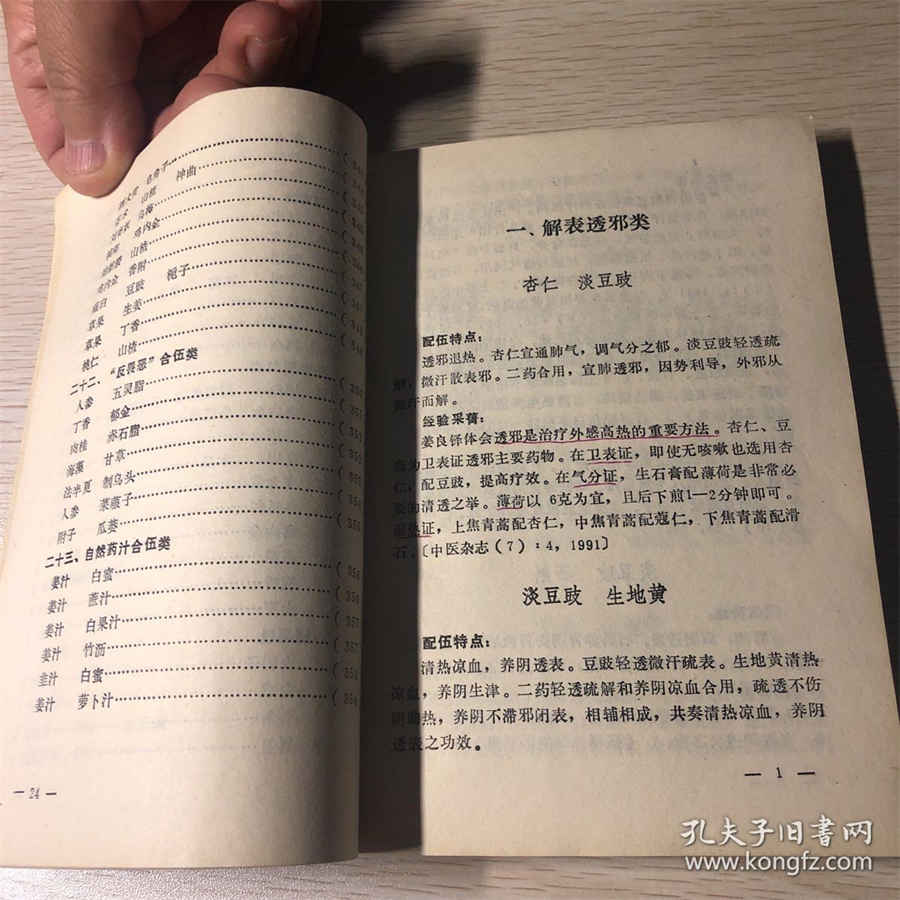 山楂 神曲
乌梅
鸡内金
山楂
香附
豆豉 栀子
草果 生姜
草果 丁香
桃仁 山楂
二十二、“反畏恶”合伍类
人参 五灵脂
丁香 郁金
肉桂 赤石脂
海藻 甘草
法半夏 制乌头
人参 莱菔子
附子 瓜蒌
二十三、自然药汁合伍类
姜汁 白蜜
姜汁 蔗汁
姜汁 白果汁
姜汁 竹沥
韭汁 白蜜
姜汁 萝卜汁
— 24 —
一、解表透邪类
杏仁 淡豆豉
配伍特点：
透邪退热。杏仁宣通肺气，调气分之郁。淡豆豉轻透疏
，微汗散表邪。二药合用，宣肺透邪，因势利导，外邪从
汗而解。
经验采菁：
姜良铎体会透邪是治疗外感高热的重要方法。杏仁、豆
为卫表证透邪主要药物。在卫表证，即使无咳嗽也选用杏
，配豆豉，提高疗效。在气分证，生石膏配薄荷是非常必
的清透之举。薄荷以 6克为宜，且后下煎1—2分钟即可。
热证，上焦青蒿配杏仁，中焦青蒿配蔻仁，下焦青蒿配滑
石。〔中医杂志（7）：4，1991〕
淡豆豉 生地黄
配伍特点：
清热凉血，养阴透表。豆豉轻透微汗疏表。生地黄清热
凉血，养阴生津。二药轻透疏解和养阴凉血合用，疏透不伤
阴助热，养阴不滞邪闭表，相辅相成，共奏清热凉血，养阴
透表之功效。
— 1 —
孔夫子旧书网
www.kongfz.com